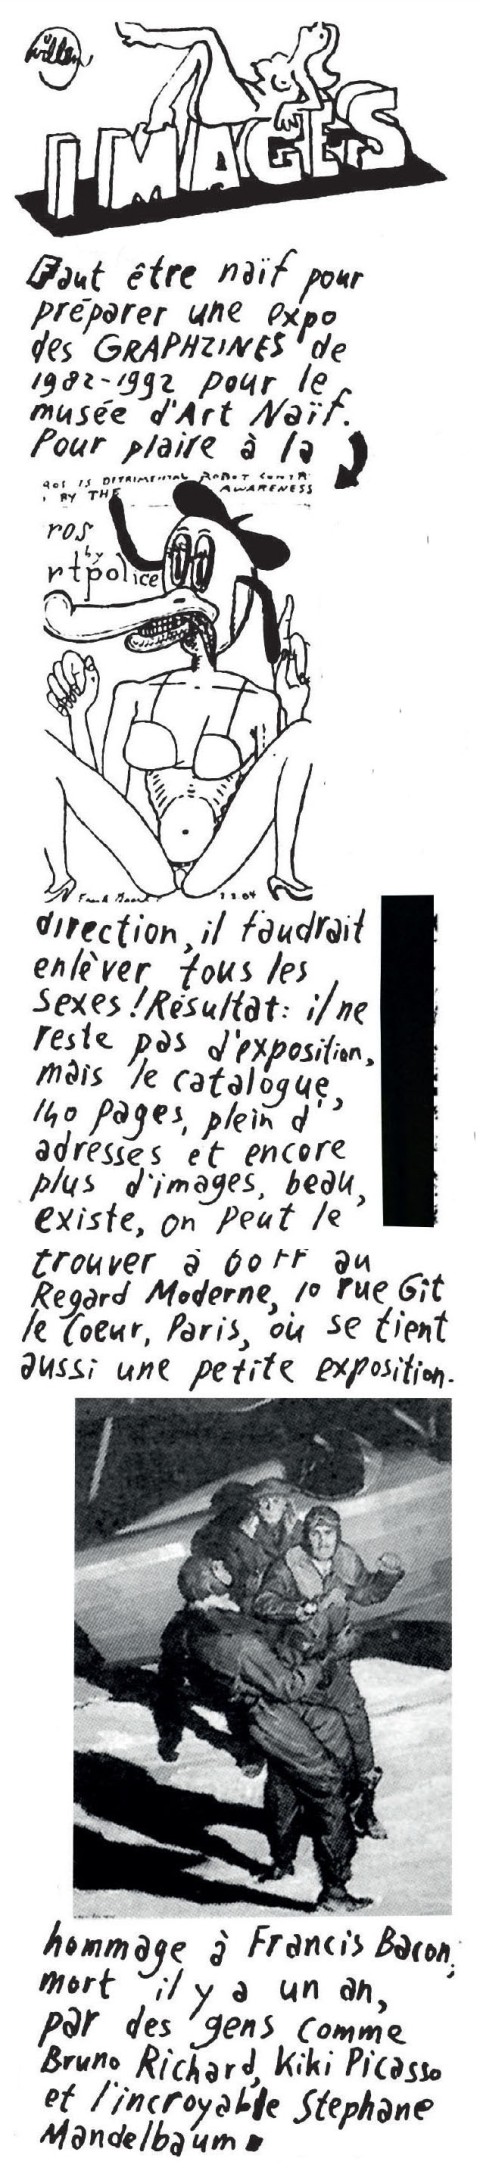 Willem
IMAGES
Faut être naïf pour
préparer une expo
des GRAPHZINES de
1982-1992 pour le
musée d'Art Naïf.
Pour plaire à la
ROS IS DETRIMENTAL ROBOT CONTR
BY THE AWARENESS
ros
by
rtpolice
direction, il faudrait
enlèver tous les
sexes! Résultat: il ne
reste pas d'exposition,
mais le catalogue,
140 pages, plein d'
adresses et encore
plus d'images, beau,
existe, on peut le
trouver à 60 FF au
Regard Moderne, 10 rue Gît
le Coeur, Paris, où se tient
aussi une petite exposition.
hommage à Francis Bacon,
mort il y a un an,
par des gens comme
Bruno Richard, Kiki Picasso
et l'incroyable Stephane
Mandelbaum